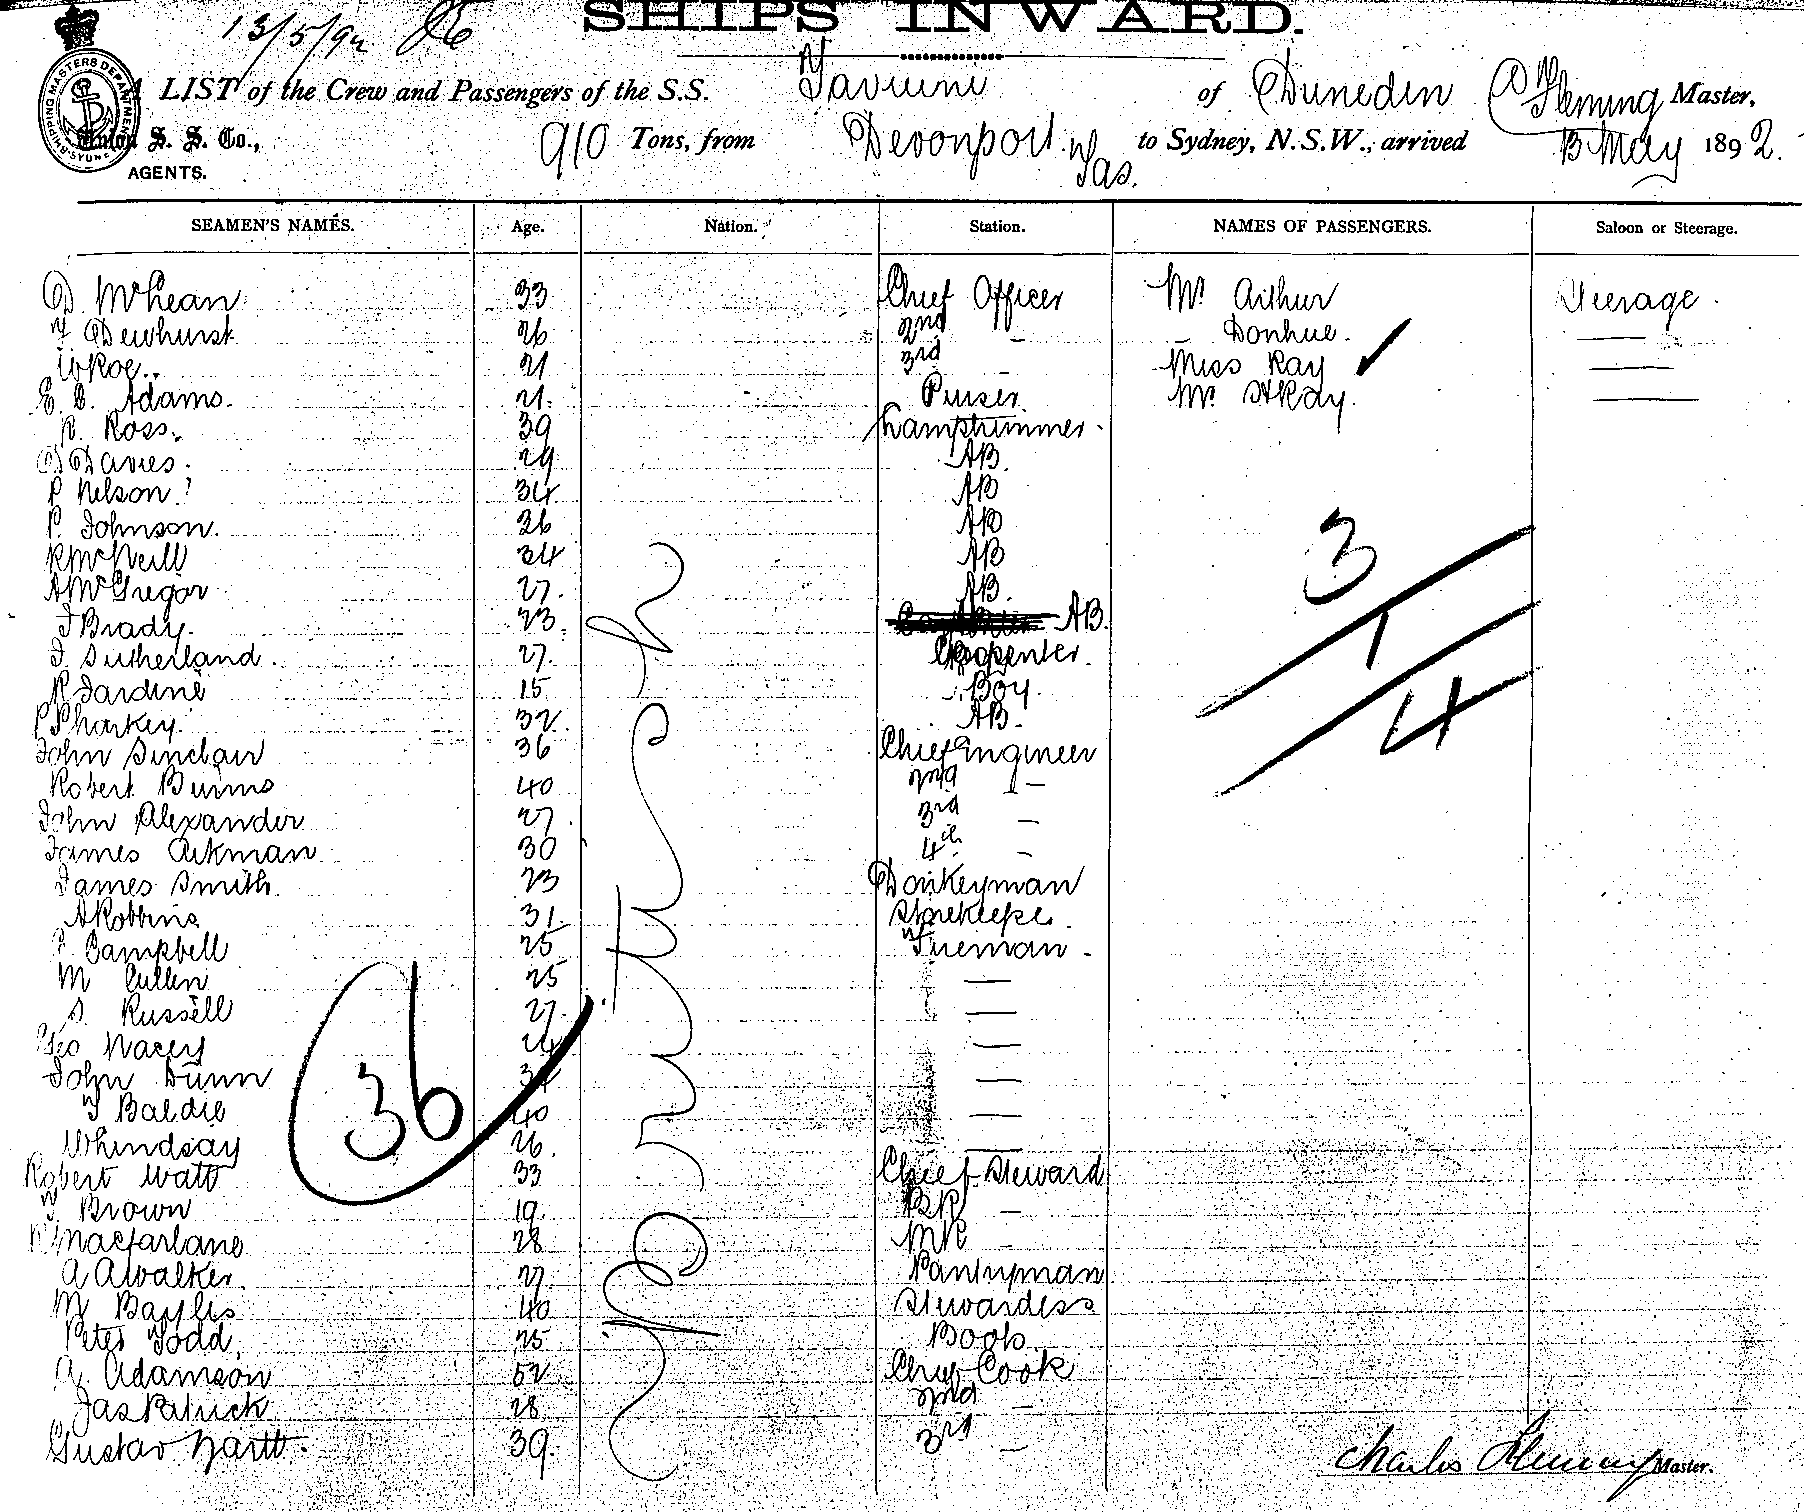 13/5/92
SHIPS INWARD.
SHIPPING MASTERS DEPARTMENT SYDNEY
A LIST of the Crew and Passengers of the S.S. Taviuni of Dunedin C Fleming Master,
Union S. S. Co., AGENTS. 910 Tons, from Devonport Tas. to Sydney, N.S.W., arrived 13 May 1892.
SEAMEN'S NAMES. Age. Nation. Station. NAMES OF PASSENGERS. Saloon or Steerage.
D. McLean 33 Chief Officer Mr Arthur Steerage
F Dewhurst 26 2nd — Donhue. —
W Roe. 21 3rd — Miss Ray —
E. C. Adams. 21. Purser Mr A Ray. —
R. Ross. 39 Lamptrimmer.
D Davies. 29 AB.
P Nelson 34 AB
P. Johnson. 26 AB
R McNeill 34 AB
A McGregor 27. AB.
J Brady. 23. AB.
J. Sutherland. 27. Carpenter.
R Jardine 15 Boy.
P Sharkey. 32 AB.
John Sinclair 36 Chief Engineer
Robert Burns 40 2nd —
John Alexander 27 3rd —
James Aikman 30 4th —
James Smith. 23 Donkeyman
A Robbins 31. Storekeeper.
P Campbell 25 Fireman.
M Cullen 25 —
S. Russell 27. —
Geo Wacey 24 —
John Dunn 34 —
T Baldie 40 —
W Lindsay 26. —
Robert Watt 33 Chief Steward
T Brown 19. BR —
Macfarlane 28 MR —
A A Walker. 27 Pantryman
M Bayles 40 Stewardess
Peter Todd. 25 Books
A. Adamson 52 Chief Cook
Jas Patrick 28 2nd —
Gustav Hartt. 39. 3rd —
3
1
4
36
Charles Fleming Master.